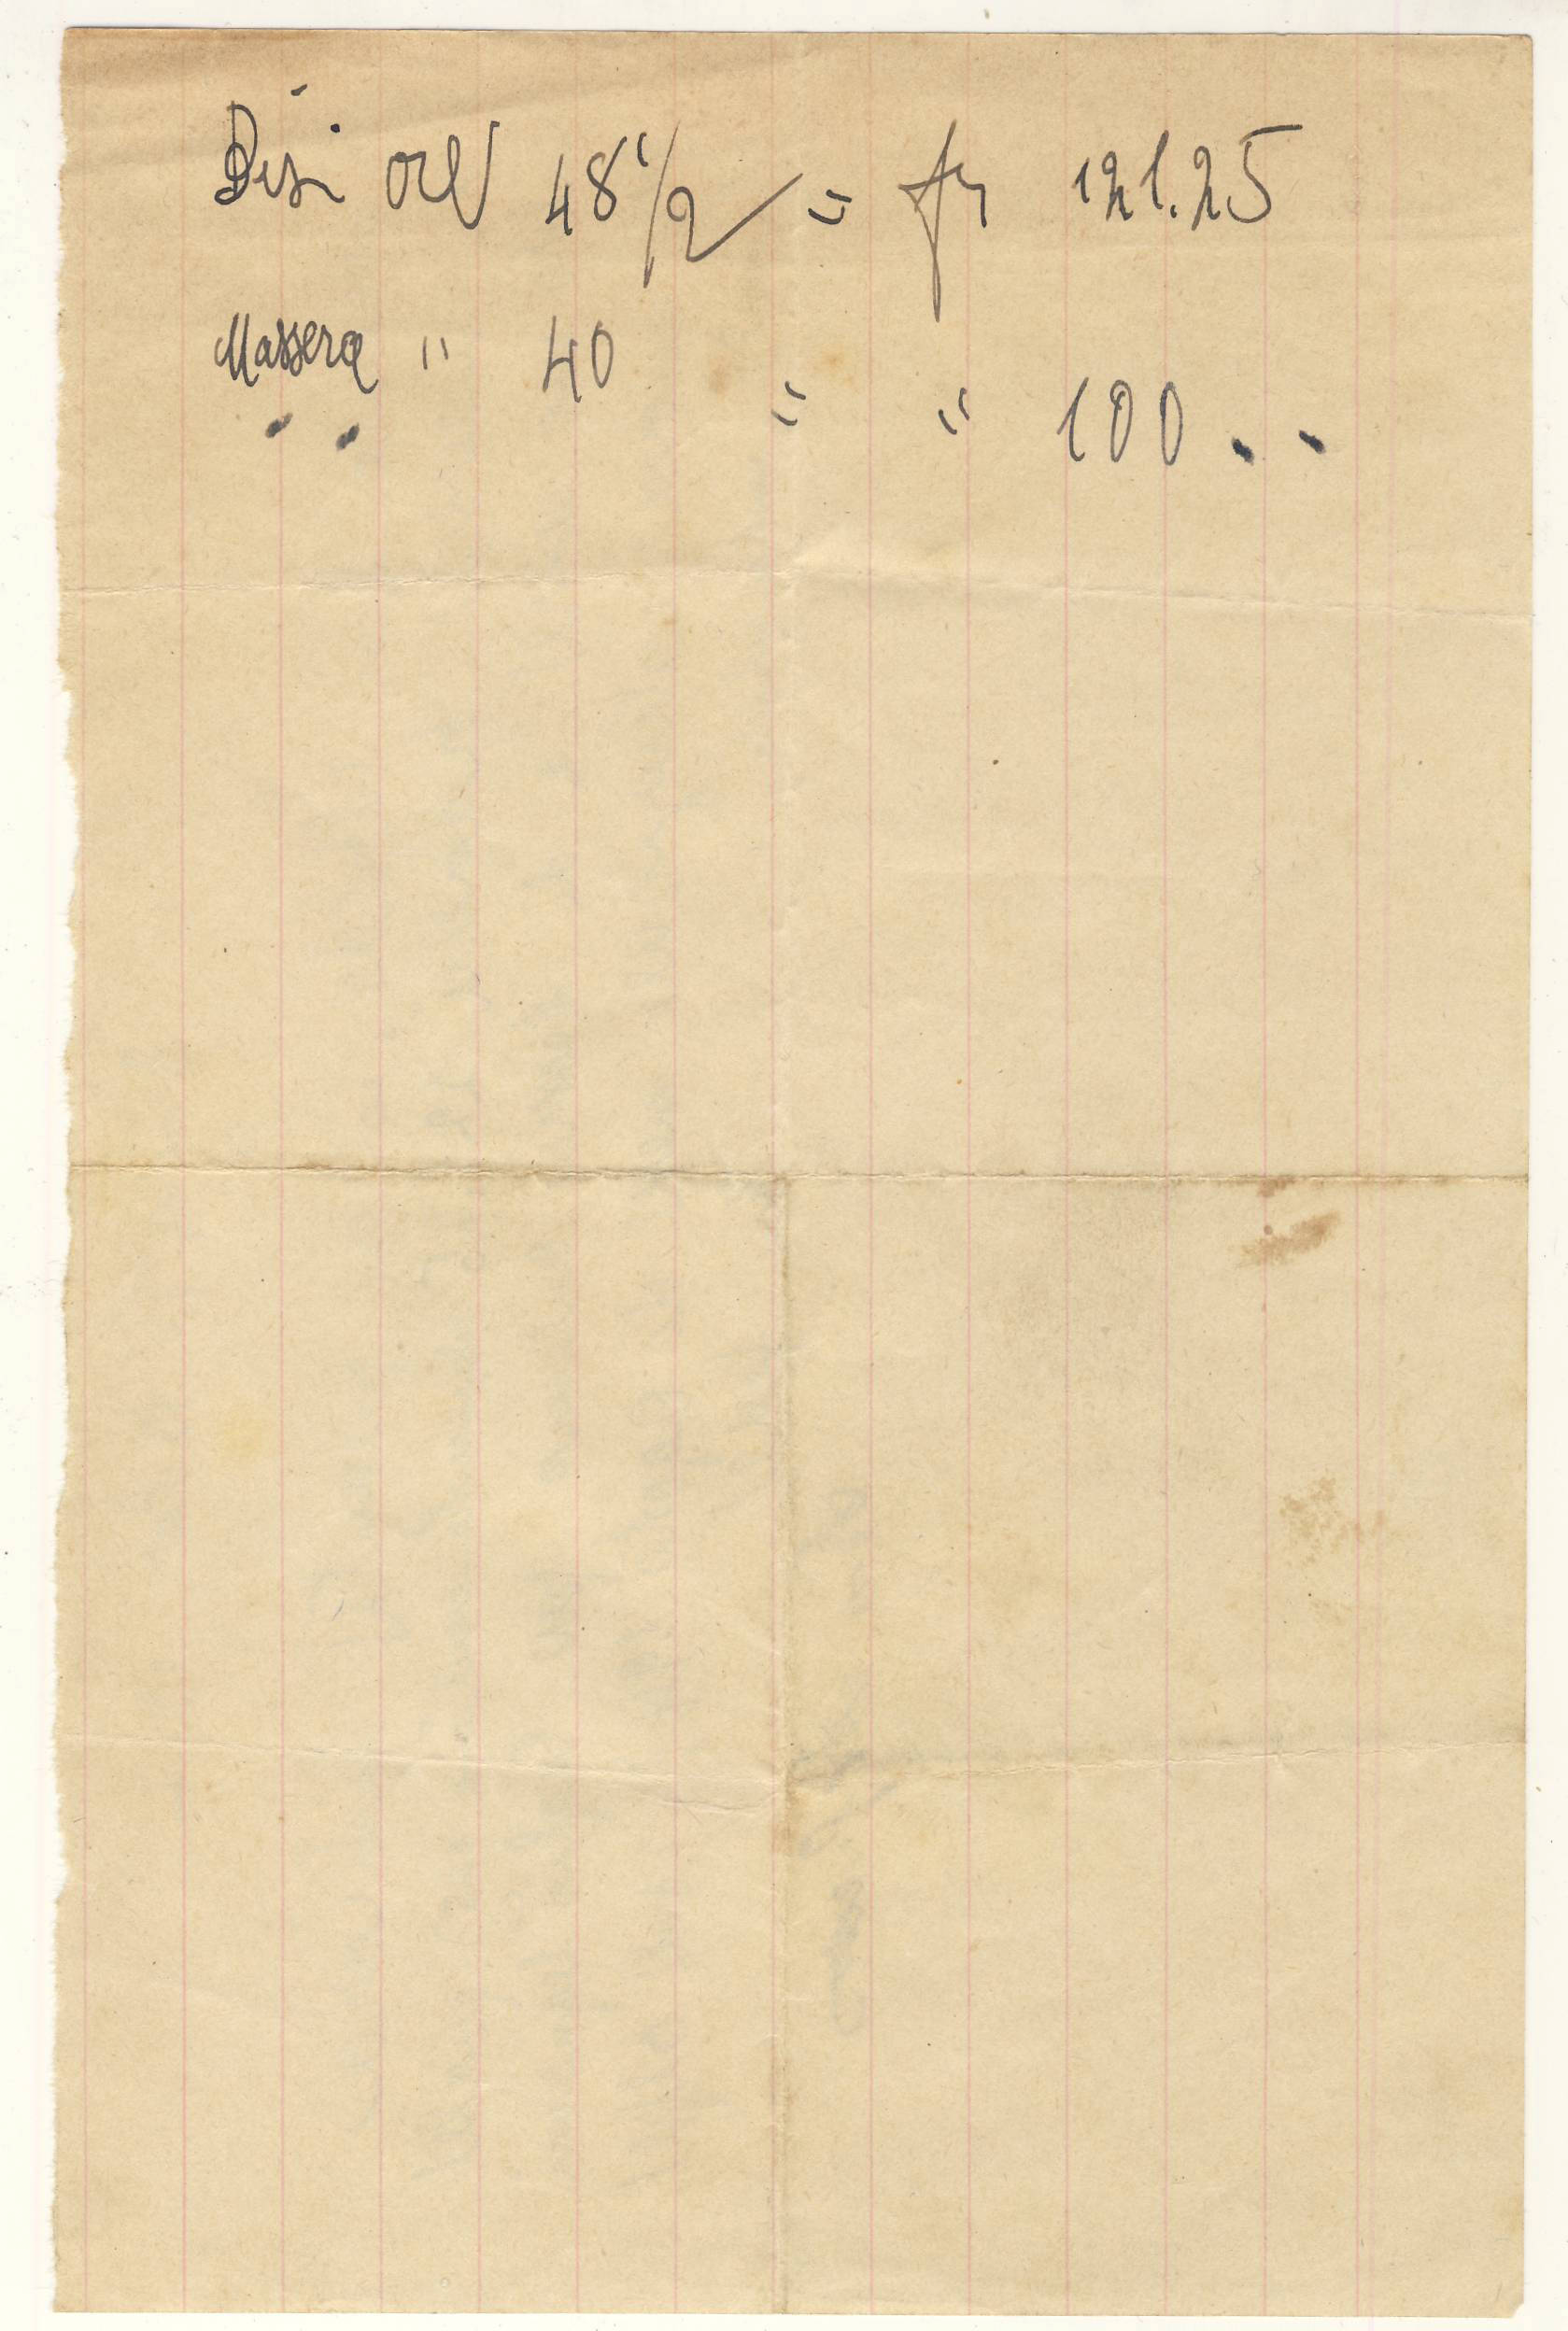 Besi ore 48 1/2 = fr 121.25
Massera " 40 = " 100 . .